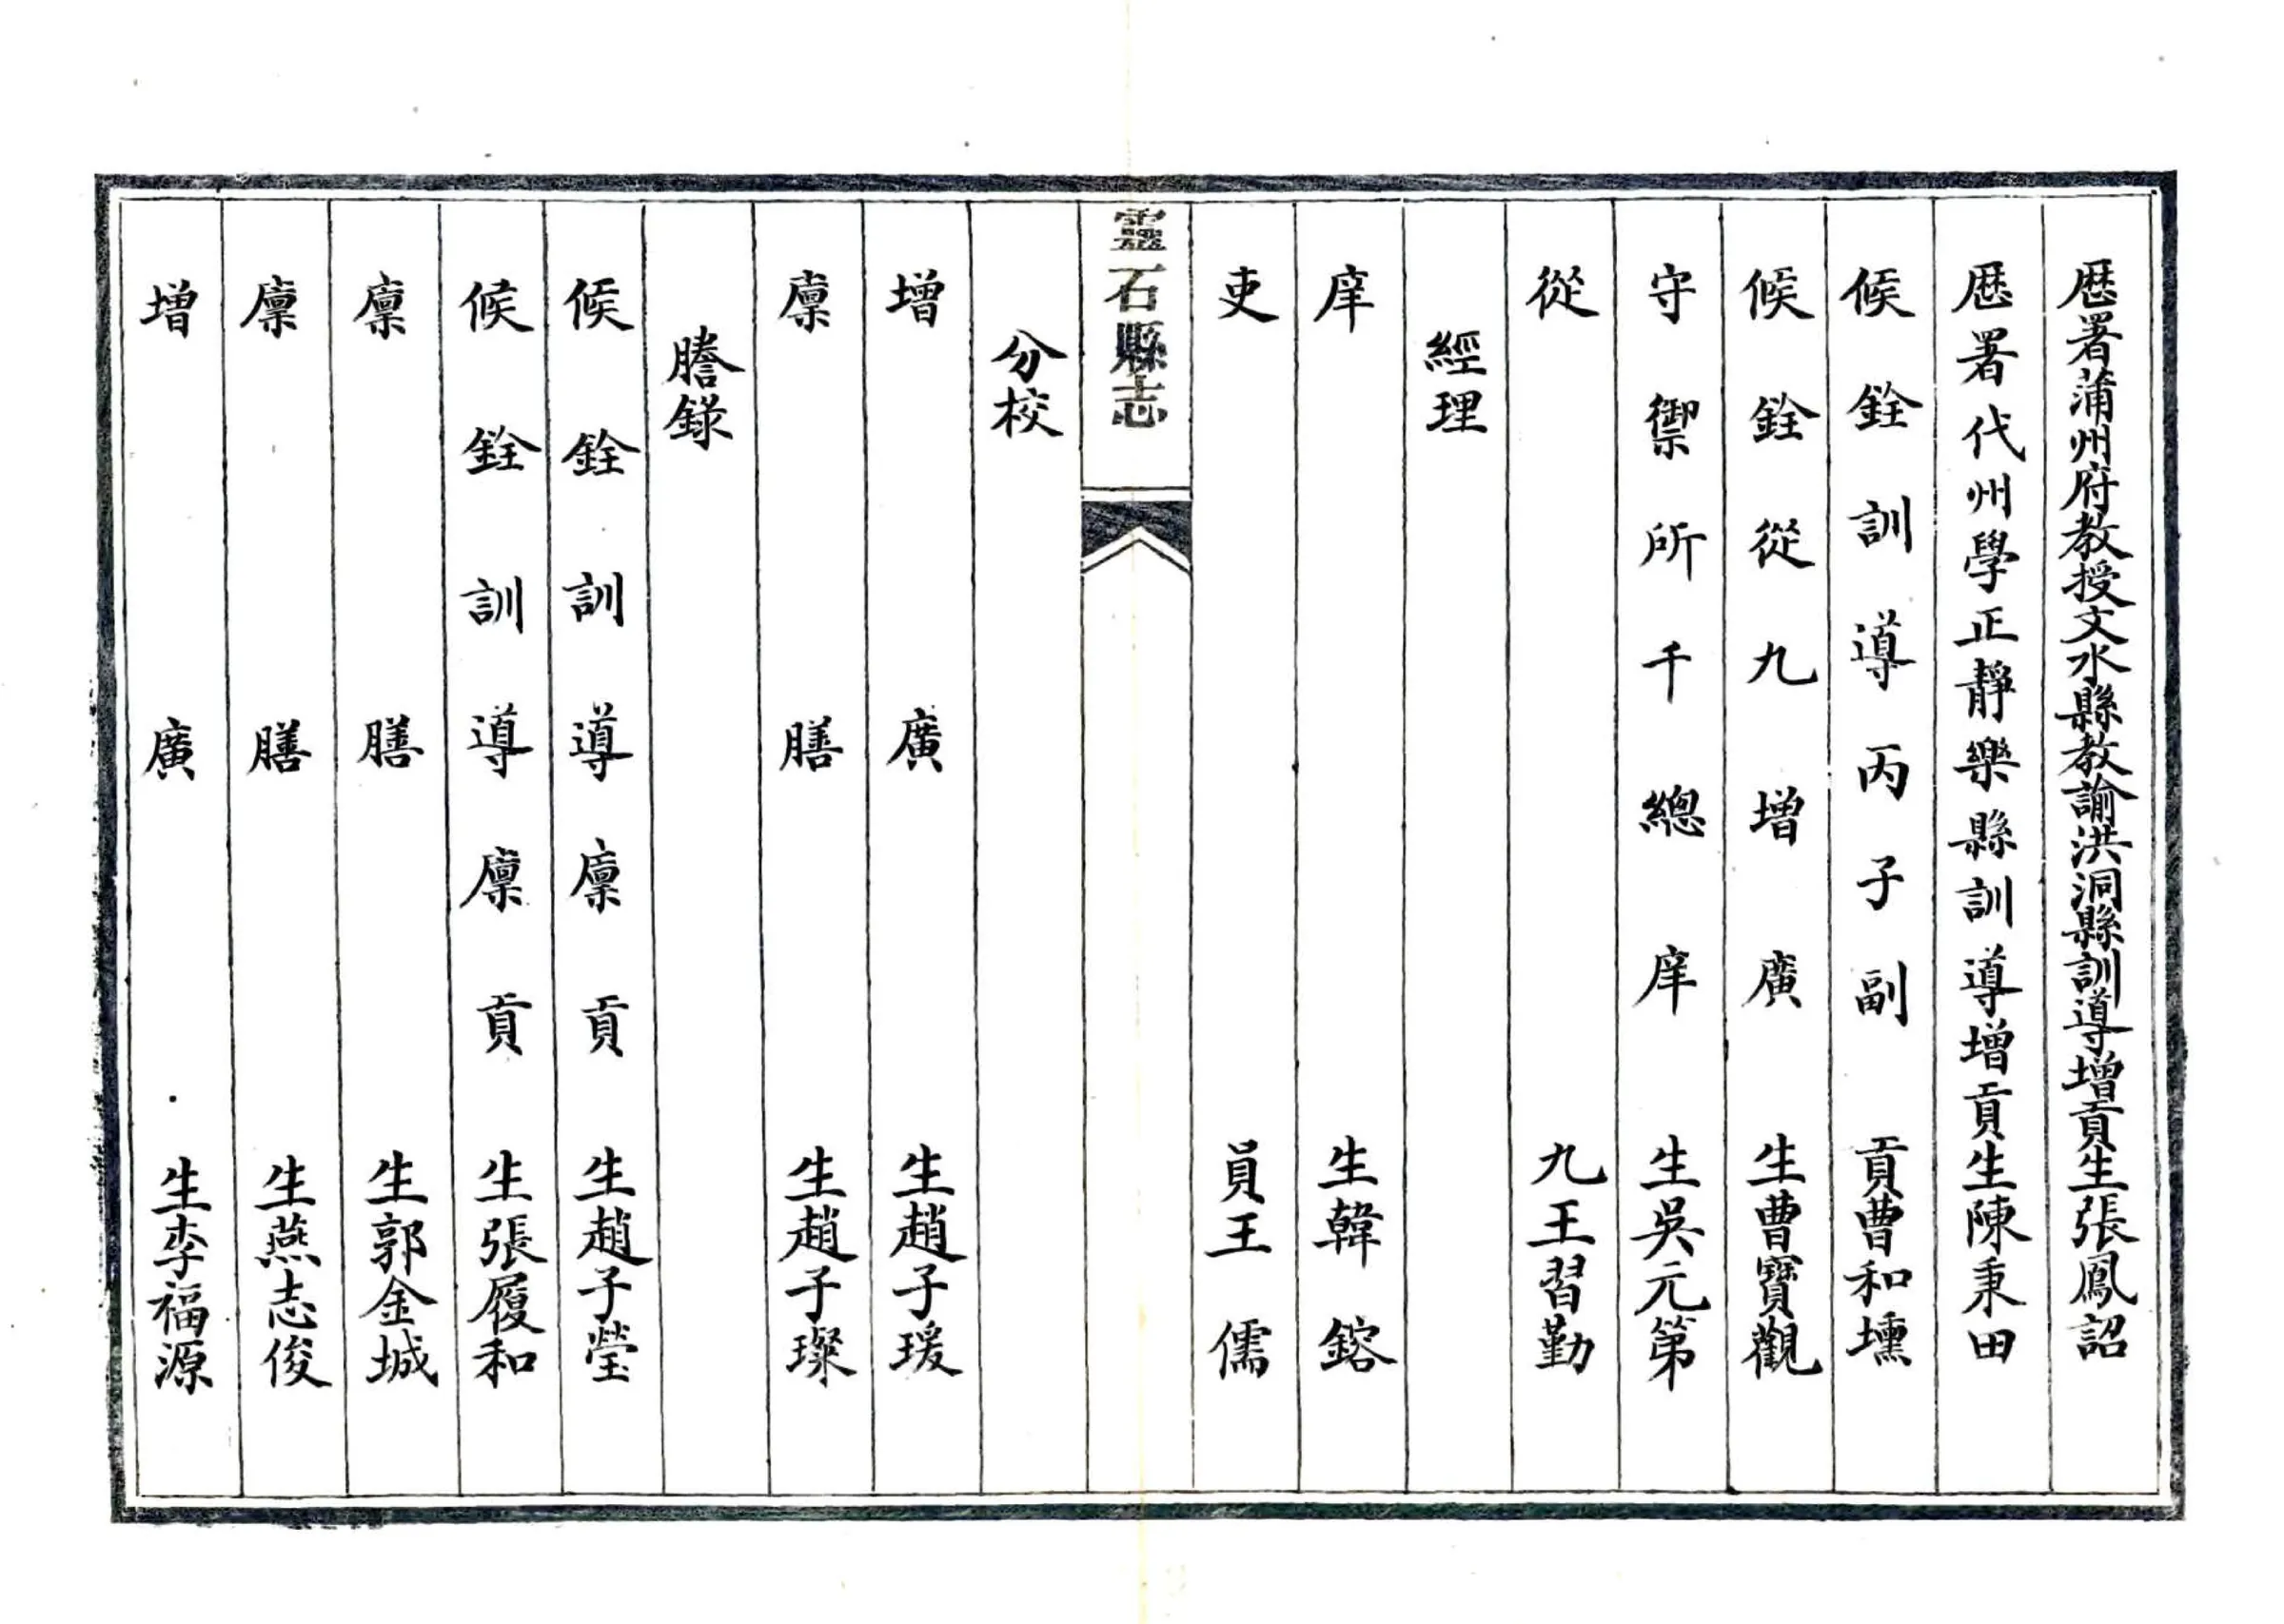 歴署蒲州府教授文水縣教諭洪洞縣訓導增貢生張鳳詔
歴署代州學正靜樂縣訓導增貢生陳秉田
候銓訓導丙子副貢曹和壎
候銓從九增廣生曹寶觀
守禦所千總庠生吳元第
從九王習勤
經理
庠生韓鎔
吏員王儒
靈石縣志
分校
增廣生趙子瑗
廩膳生趙子璨
謄錄
候銓訓導廩貢生趙子瑩
候銓訓導廩貢生張履和
廩膳生郭金城
廩膳生燕志俊
增廣生李福源